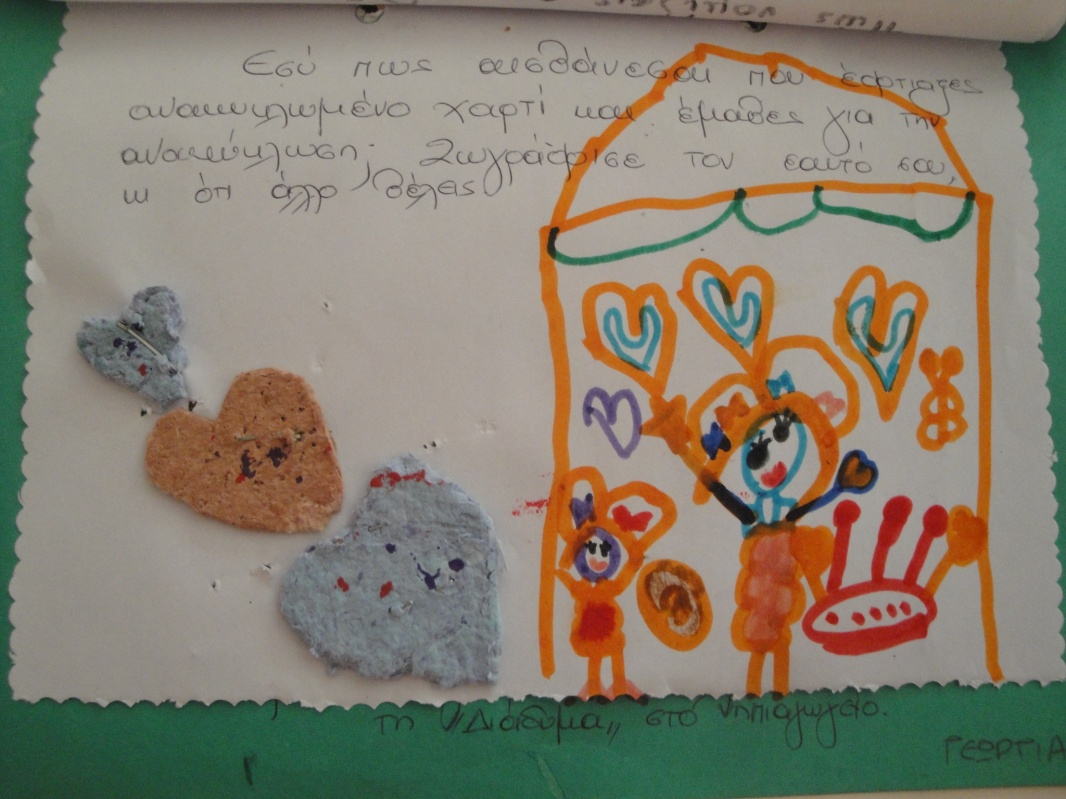 Εσύ πως αισθάνεσαι που έφτιαξες
ανακυκλωμένο χαρτί και έμαθες για την
ανακύκλωση; Ζωγράφισε τον εαυτό σου,
ή ότι άλλο θέλεις
τη "Δίδυμα" στο νηπιαγωγείο.
ΓΕΩΡΓΙΑ